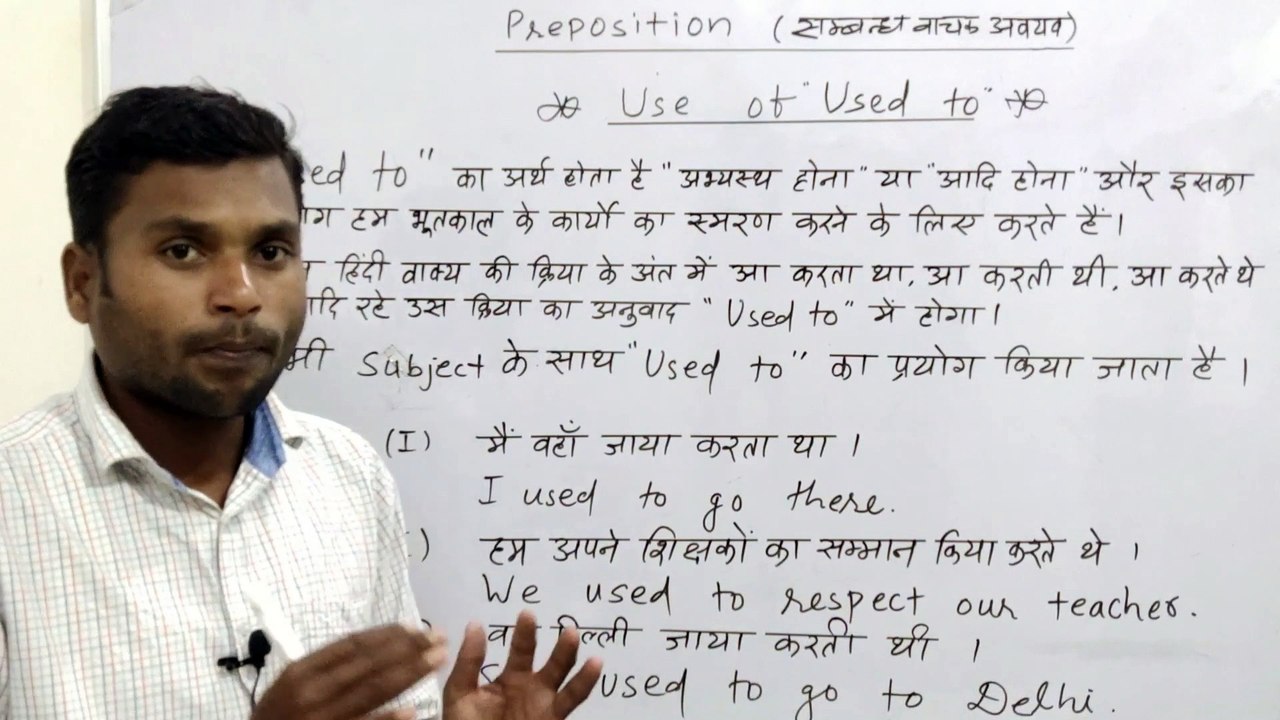 Preposition (सम्बन्ध वाचक अवयव)
Use of "Used to"
to" का अर्थ होता है "अभ्यस्थ होना" या "आदि होना" और इसका
हम भूतकाल के कार्यों का स्मरण करने के लिए करते हैं।
हिंदी वाक्य की क्रिया के अंत में आ करता था, आ करती थी, आ करते थे
रहे उस क्रिया का अनुवाद "Used to" में होगा।
Subject के साथ "Used to" का प्रयोग किया जाता है ।
(I) मैं वहाँ जाया करता था ।
I used to go there.
हम अपने शिक्षकों का सम्मान किया करते थे ।
We used to respect our teacher.
जाया करती थी ।
used to go to Delhi.